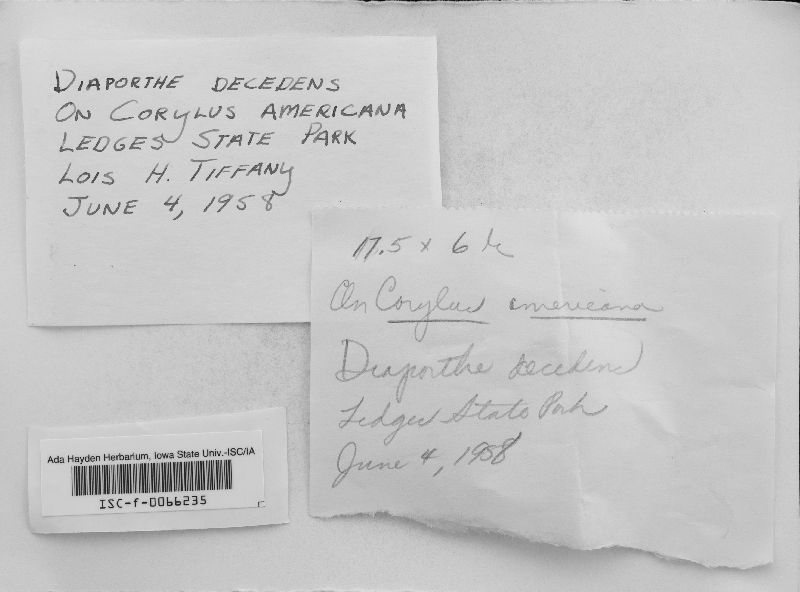 DIAPORTHE DECEDENS
ON CORYLUS AMERICANA
LEDGES STATE PARK
LOIS H. TIFFANY
JUNE 4, 1958
17.5 x 6 μ
On Corylus americana
Diaporthe decedens
Ledges State Park
June 4, 1958
Ada Hayden Herbarium, Iowa State Univ.-ISC/IA
ISC-f-0066235